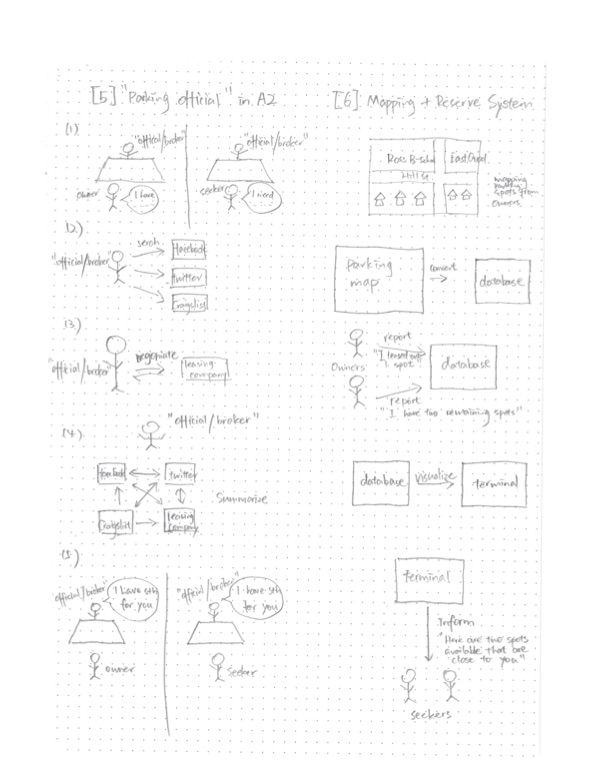 [5] "Parking official" in A2
(1)
"official/broker"
owner
I have
"official/broker"
seeker
I need
(2)
"official/broker"
serch
facebook
twitter
Craigslist
(3)
"official/broker"
negotiate
leasing
company
(4)
"official/broker"
facebook
twitter
Craigslist
leasing
company
Summarize
(5)
official/broker"
I have sth
for you
owner
"official/broker"
I have sth
for you
Seeker
[6] Mapping + Reserve System
Ross B-school
East Quad.
Hill St.
mapping
parking
spots from
Owners.
parking
map
convert
database
Owners
report
"I leased out
1 spot"
database
report
"I have two remaining spots"
database
visualize
terminal
terminal
Inform
"Here are two spots
available that are
close to you"
seekers